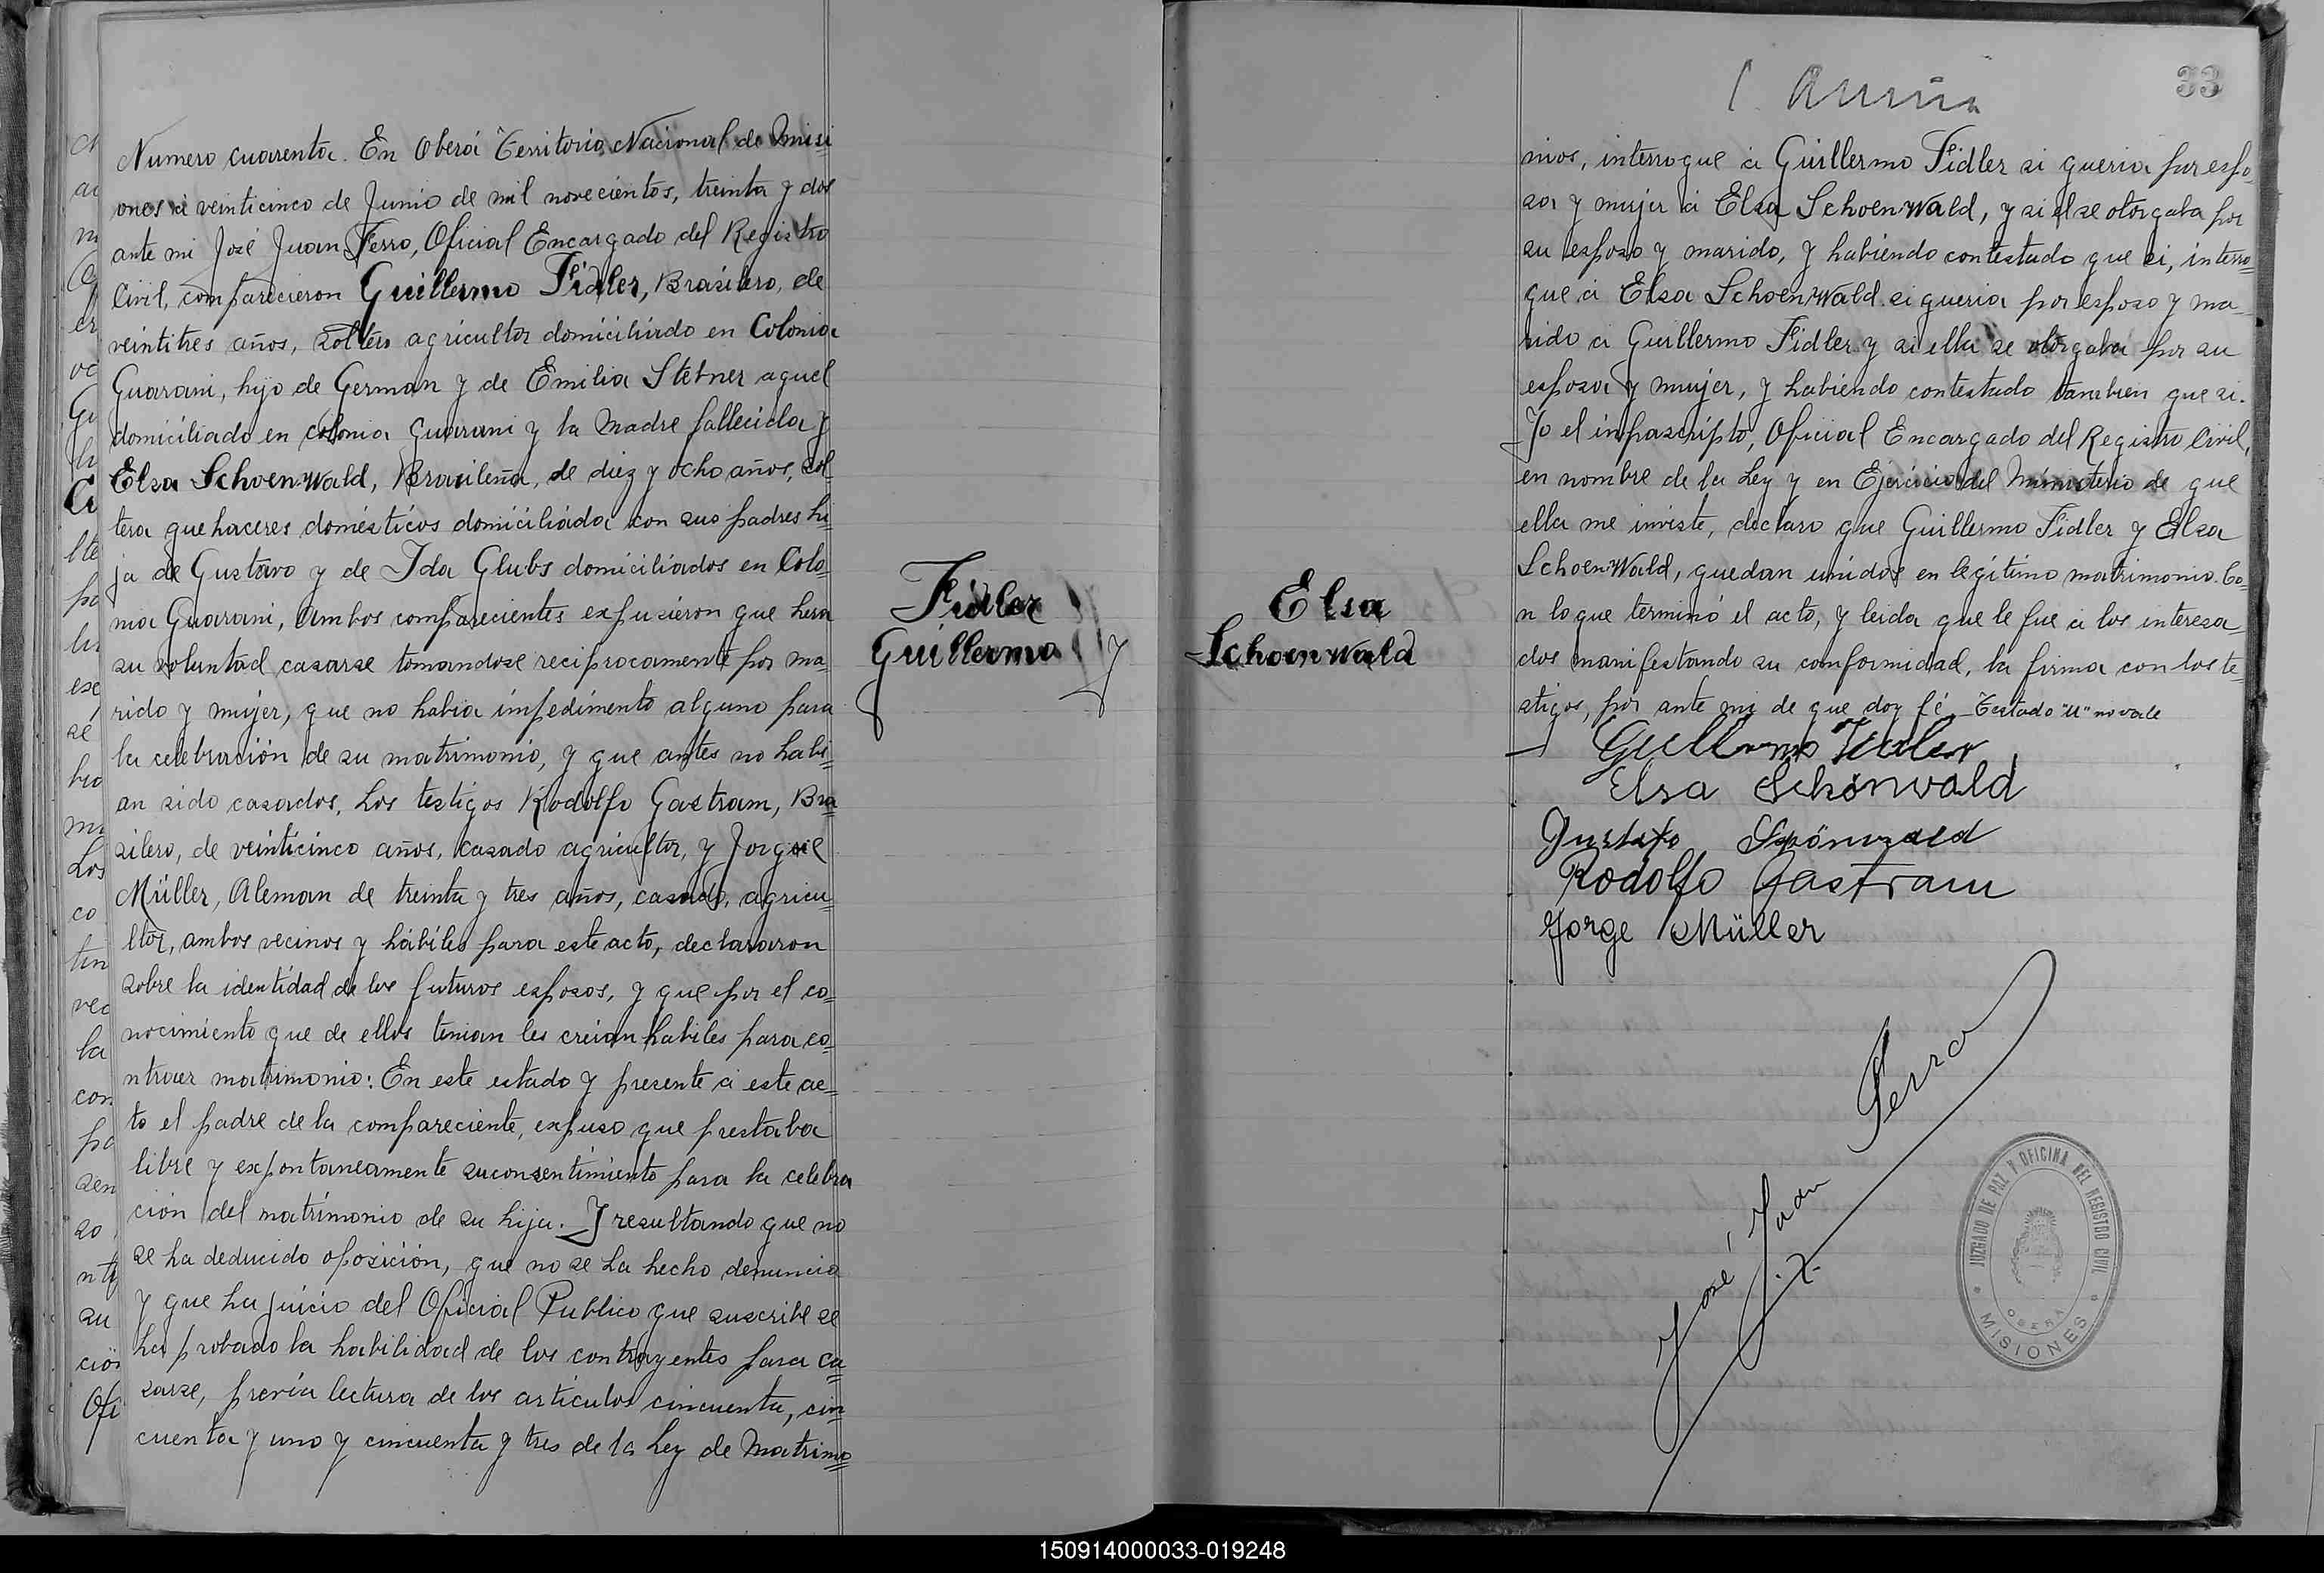 Numero cuarenta. En Oberá Territorio Nacional de Misi
ones á veinticinco de Junio de mil novecientos, treinta y dos
ante mi José Juan Ferro, Oficial Encargado del Registro
Civil, comparecieron Guillermo Fidler, Brasilero, de
veintitres años, soltero agricultor domiciliado en Colonia
Guarani, hijo de German y de Emilia Stebner aquel
domiciliado en colonia Guarani y la Madre fallecida y
Elsa Schoenwald, Brasileña, de diez y ocho años, sol
tera quehaceres domésticos domiciliada con sus padres hi
ja de Gustavo y de Ida Glubs domiciliados en Colo
nia Guarani, Ambos comparecientes expusieron que hera
su voluntad casarse tomandose reciprocamente por ma
rido y mujer, que no habia impedimento alguno para
la celebración de su matrimonio, y que antes no habi
an sido casados. Los testigos Rodolfo Gastram, Bra
silero, de veinticinco años, casado agricultor, y Jorge
Müller, Aleman de treinta y tres años, casado, agricu
ltor, ambos vecinos y hábiles para este acto, declararon
sobre la identidad de los futuros esposos, y que por el co
nocimiento que de ellos tenian les creian habiles para co
ntraer matrimonio: En este estado y presente á este ac
to el padre de la compareciente, expuso que prestaba
libre y expontaneamente su consentimiento para la celebra
ción del matrimonio de su hija. Y resultando que no
se ha deducido oposición, que no se ha hecho denuncia
y que ha juicio del Oficial Publico que suscribe se
ha probado la habilidad de los contrayentes para ca
sarse, previa lectura de los artículos cincuenta, cin
cuenta y uno y cincuenta y tres de la Ley de Matrimo
Fidler
Guillermo y
Elsa
Schoenwald
33
nios, interrogue á Guillermo Fidler si queria por espo
sa y mujer á Elsa Schoenwald, y si el se otorgaba por
su esposo y marido, y habiendo contestado que si, interro
gue á Elsa Schoenwald si queria por esposo y ma
rido á Guillermo Fidler y si ella se otorgaba por su
esposa y mujer, y habiendo contestado tambien que si.
Yo el infrascripto, Oficial Encargado del Registro Civil,
en nombre de la Ley y en Ejercicio del Ministerio de que
ella me inviste, declaro que Guillermo Fidler y Elsa
Schoenwald, quedan unidos en legítimo matrimonio. Co
n lo que terminó el acto, y leida que le fue á los interesa
dos manifestando su conformidad, la firma con los te
stigos, por ante mi de que doy fé. Testado "U" no vale
Guillermo Fidler
Elsa Schönwald
Gustafo Schönwald
Rodolfo Gastram
Jorge Müller
José Juan Ferro
JUZGADO DE PAZ Y OFICINA DEL REGISTRO CIVIL
OBERA
MISIONES
150914000033-019248